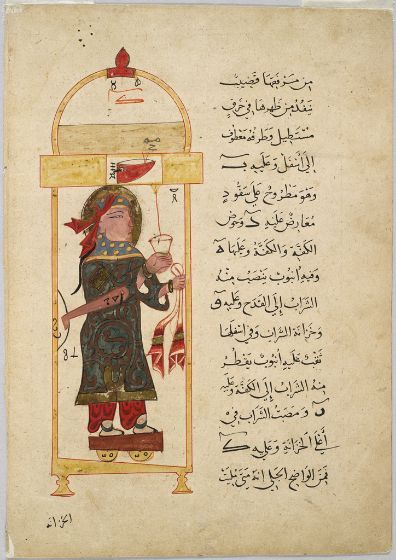 من مرفقها قضيب
ينفذ من ظهرها في خرق
مستطيل وطرفه معطوف
إلى أسفل وعليه
وهو مطروح على سفود
معارض عليه وحوض
الكفة والكفة وعليها
وفيه أنبوب ينصب منه
الشراب إلى القدح وعليه
وخزانة الشراب وفي أسفلها
ثقب عليه أنبوب يقطر
منه الشراب إلى الكفة وعليه
ومصب الشراب في
أعلى الخزانة وعليه
فمن الواضح الجلي انه متى
الخزانة